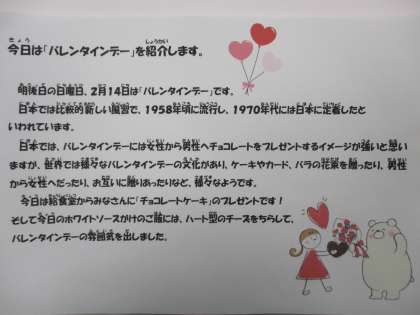 今日は「バレンタインデー」を紹介します。
明後日の日曜日、2月14日は「バレンタインデー」です。
日本では比較的新しい風習で、1958年頃に流行し、1970年代には日本に定着したと
いわれています。
日本では、バレンタインデーには女性から男性へチョコレートをプレゼントするイメージが強いと思い
ますが、世界では様々なバレンタインデーの文化があり、ケーキやカード、バラの花束を贈ったり、男性
から女性へだったり、お互いに贈りあったりなど、様々なようです。
今日は給食室からみなさんに「チョコレートケーキ」のプレゼントです！
そして今日のホワイトソースがけのご飯には、ハート型のチーズをちらして、
バレンタインデーの雰囲気を出しました。